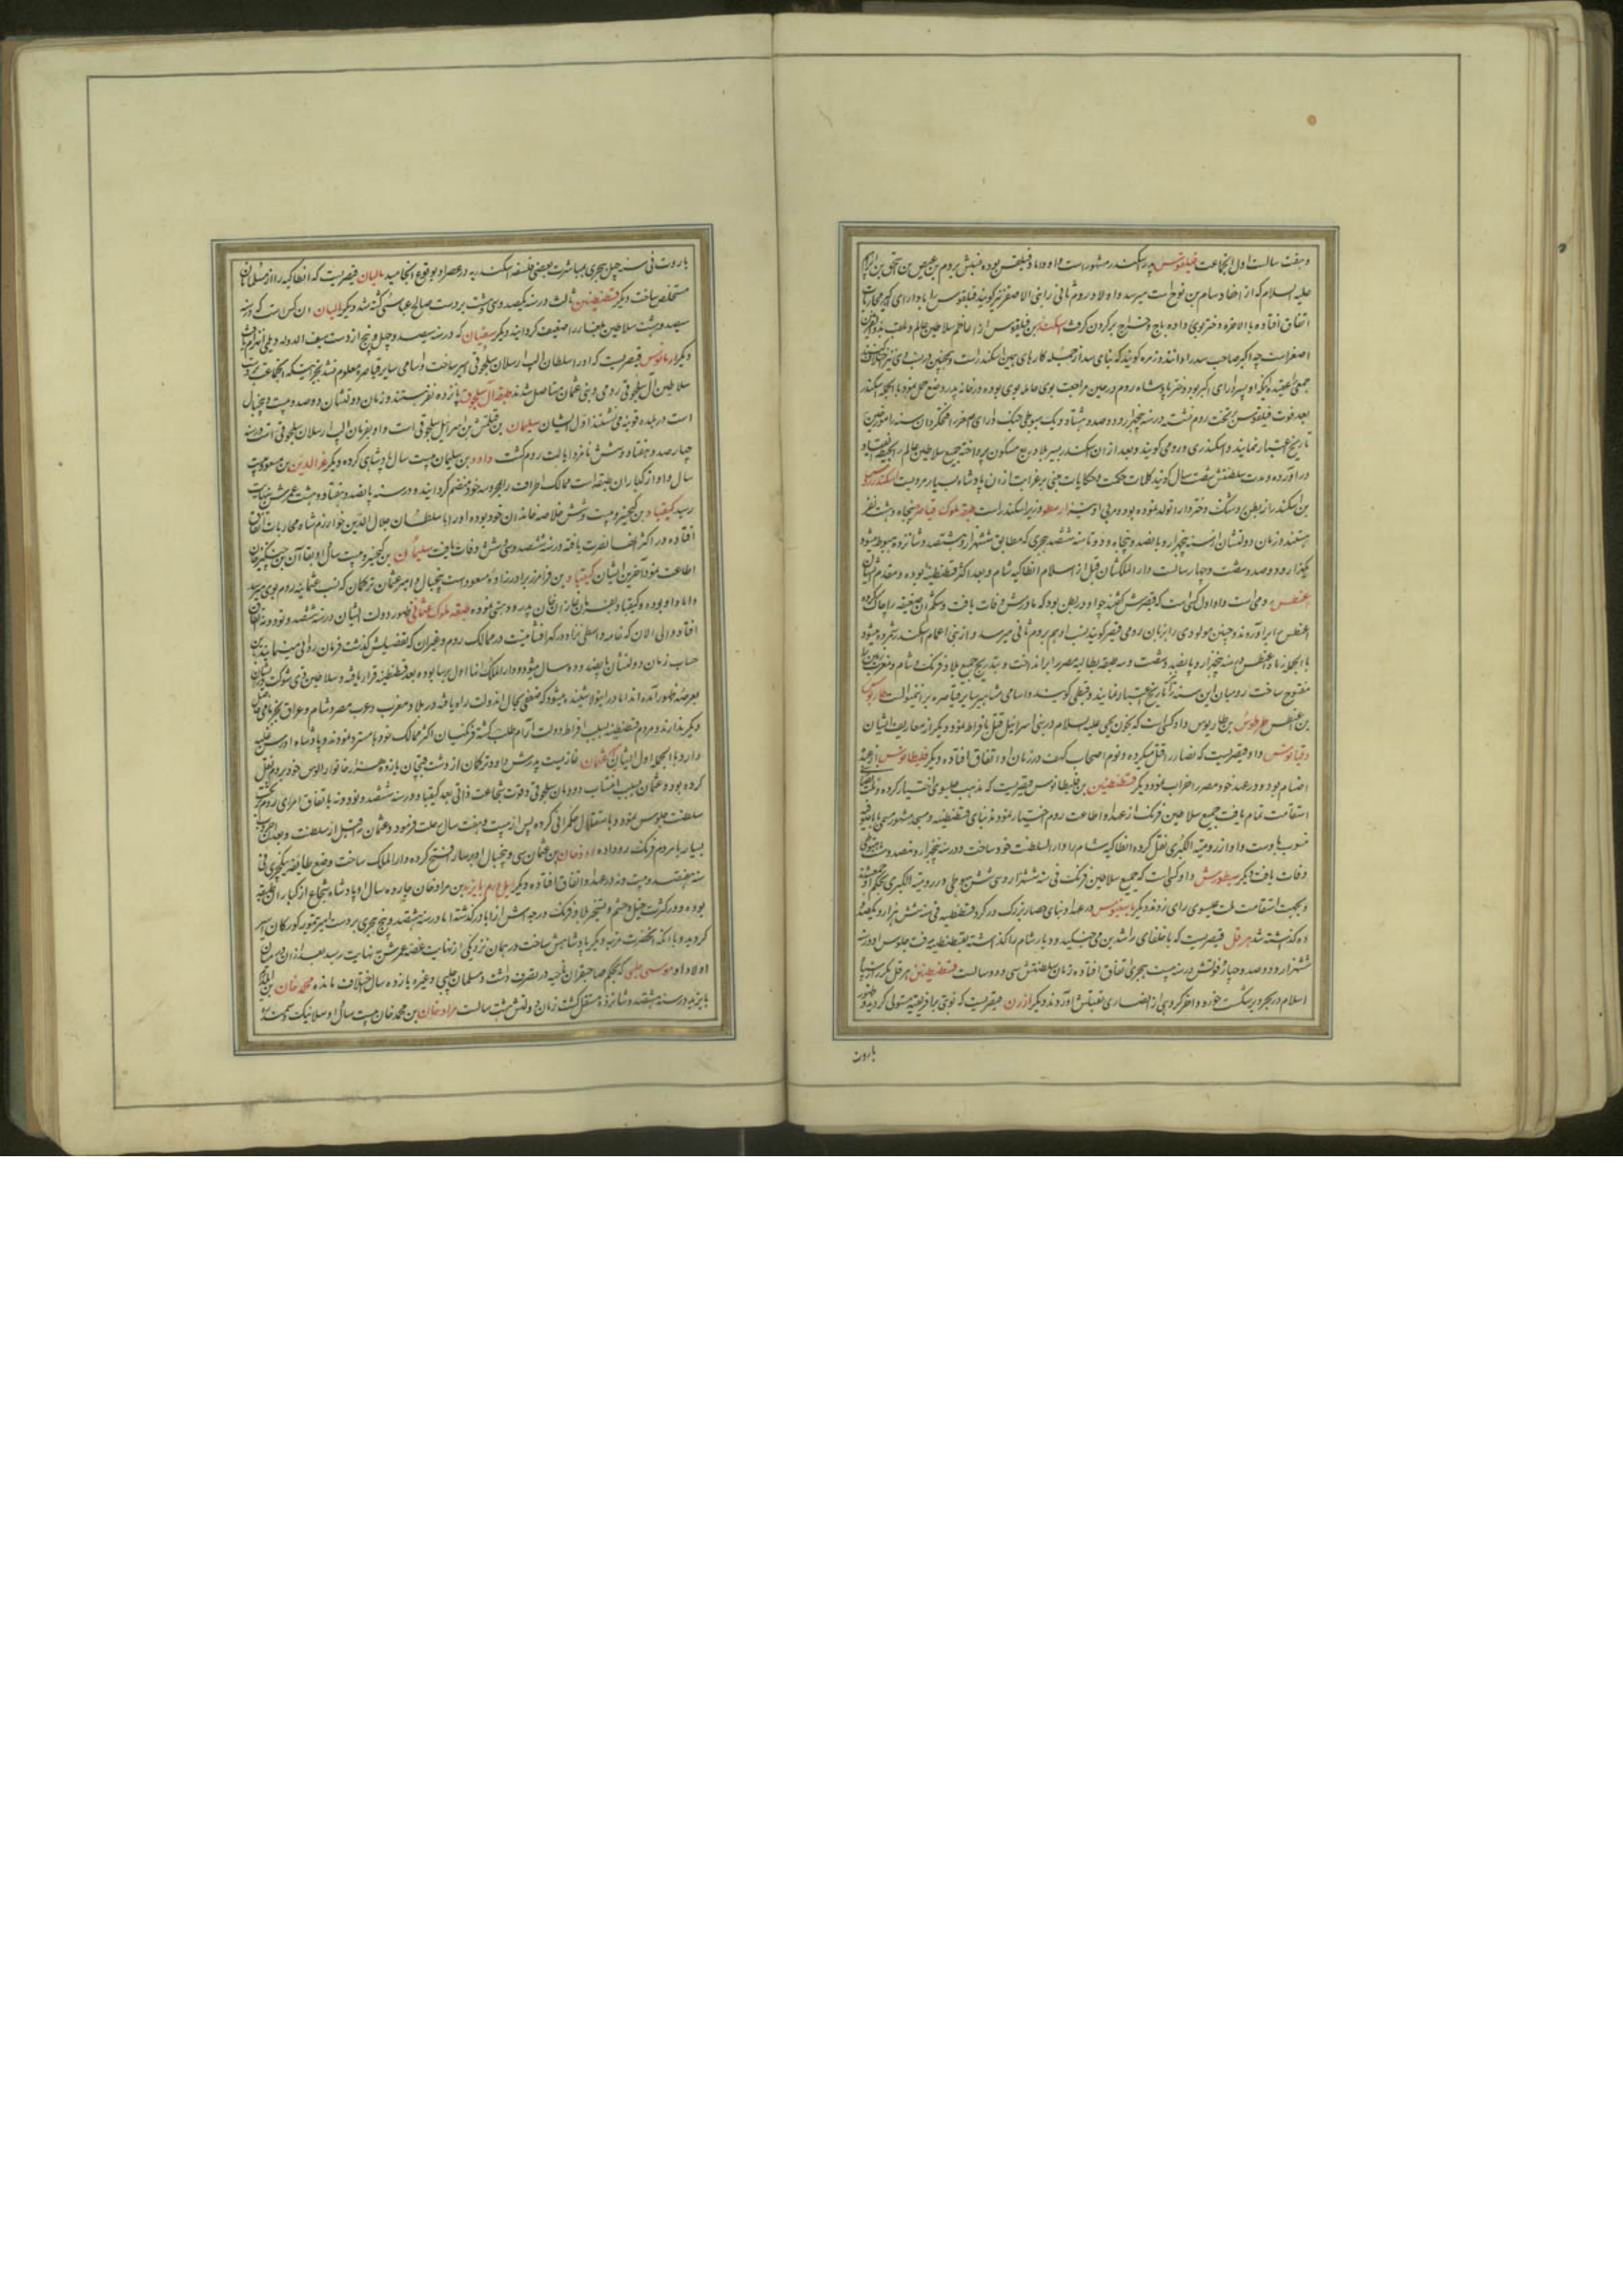 و هفت سالست اول انجماعت فیلقوس پدر اسکندر مشهور است و او داماد فیلقس بوده نسبش بروم بن عیص بن اسحق بن ابراهیم
علیه السلام که از احفاد سام بن نوح است میرسد و اولاد روم ثانی را بنی الاصفر نیز گویند فیلقوس را با دارای اکبر محاربات
اتفاق افتاده بالاخره دختر بوی داده باج و خراج بر گردن گرفت اسکندر بن فیلقوس از اعاظم سلاطین عالم و ملقب بذو القرنین
اصغر است چه اکبر صاحب سد را دانند و زمره گویند که بنای سد از جمله کارهای همین اسکندر است و همچنین در نسب وی نیز اختلاف
جمعی را عقیده اینکه او پسر دارای اکبر بود و دختر پادشاه روم در حین مراجعت بوی حامله بوی بوده در خانه پدر وضع حمل نمود بالجمله اسکندر
بعد فوت فیلقوس بر تخت روم نشسته در سنه پنجهزار و دو صد و هشتاد و یک هبوطی جنک دارای اصغر را
تاریخ اعتبار نمایند و اسکندری و رومی گویند و بعد از آن اسکندر بسیر بلاد ربع مسکون پرداخته جمیع سلاطین عالم را
در آورده و مدت سلطنتش هفت سال گویند کلمات حکمت و حکایات مبنی بر غرایب از آن پادشاه بسیار مرویست اسکندروس
بن اسکندر از بطن روشنک دختر دارا تولد نموده بود و مربی او نیز ارسطو وزیر اسکندر است طبقه ملوک قیاصره پنجاه و هشت نفر
هستند و زمان دولتشان از سنه پنجهزار و پانصد و پنجاه و دو تا سنه ششصد هجری که مطابق ششهزار و هشتصد و شانزده هبوط میشود
یکهزار و دو صد و شصت و چهار سالست دار الملکشان قبل از اسلام انطاکیه شام و بعد اکثر قسطنطنیه بوده و مقدم ایشان
اغنطس رومی است و او اول کسی است که قیصرش گفتند چه او در بطن بود که مادرش وفات یافت و شکم آن ضعیفه را چاک کرده
اغنطس را برآوردند و چنین مولودی را بزبان رومی قیصر گویند نسب او هم بروم ثانی میرسد و از بنی اعمام اسکندر شمرده میشود
بالجمله زمان اغنطس در سنه پنجهزار و پانصد و شصت و سه طبقه بطالسه مصر را برانداخت و بتدریج جمیع بلاد فرنک و شام و مغرب زمین را
مفتوح ساخت رومیان این سنه را تاریخ اعتبار نمایند و قبطی گویند و اسامی مشاهیر سایر قیاصره بر اینمنوالست طاریوس
بن اغنطس طرطوس بن طاریوس و او کسی است که بخون یحیی علیه السلام در بنی اسرائیل قتل بافراط نمود و دیگر از معاریف ایشان
دقیانوس و او قیصریست که نصارا را قتل میکرده و نوم اصحاب کهف در زمان او اتفاق افتاده و دیگر فلیطانوس از عبده
اصنام بود و در عهد خود مصر را خراب نمود و دیگر قسطنطین بن فلیطانوس قیصریست که مذهب عیسوی اختیار کرده و ملت نصاری
استقامت تمام یافت جمیع سلاطین فرنک از عهد او اطاعت روم اختیار نمودند بنای قسطنطنیه و مسجد مشهور مسمی بایا صوفیه
منسوب باوست و او از رومیه الکبری نقل کرده انطاکیه شام را دار السلطنت خود ساخت و در سنه پنجهزار و نهصد و بیست هبوطی
وفات یافت دیگر سیطورس و او کسی است که جمیع سلاطین فرنک فی سنه ششهزار و سی شش هبوطی در رومیه الکبری بحکم او جمع شده
و بجهت استقامت ملت عیسوی رای زدند و دیگر باسیلیوس در عهد او بنای حصار بزرک در گرد قسطنطنیه فی سنه شش هزار و یکصد و
ده گذاشته شد هرقل قیصریست که با خلفای راشدین می جنگید و دیار شام را گذاشته بقسطنطنیه رفت جلوس او در سنه
ششهزار و دو صد و چهار فوتش در سنه بیست هجری اتفاق افتاده زمان سلطنتش سی و دو سالست قسطنطین هرقل بکرات از سپاه
اسلام در بحر و بر شکست خورد و آخر گروهی از نصاری بقتلش آوردند دیگر ازرن قیصریست که نوبتی بر افریقیه مستولی گردید و ظهور
باروت
باروت فی سنه چهل هجری بمباشرت بعضی فلسفه اسکندریه در عصر او بوقوع انجامید مالیان قیصریست که انطاکیه را از مسلمانان
مستخلص ساخت دیگر قسطنطین ثالث در سنه یکصد و سی و شش بر دست صالح عباسی کشته شد دیگر الیان آن کس است که در سنه
سیصد و هشت سلاطین بلغار را ضعیف گردانید دیگر سقیان که در سنه سیصد و چهل و پنج از دست سیف الدوله دیلمی انهزام یافت
دیگر ارمانوس قیصریست که او را سلطان الب ارسلان سلجوقی اسیر ساخت و اسامی سایر قیاصره معلوم نشد بجز اینکه انجماعت بر دست
سلاطین آل سلجوقی رومی و بنی عثمان مستاصل شدند طبقه آل سلجوق پانزده نفر هستند و زمان دولتشان دو صد و بیست و پنجسال
است در بلده قونیه می نشستند اول ایشان سلیمان بن قتلمش بن اسرائیل سلجوقی است و او بفرمان الب ارسلان سلجوقی در سنه
چهار صد و هفتاد و شش نامزد ایالت روم گشت داود بن سلیمان بیست سال پادشاهی کرده دیگر عز الدین بن مسعود بیست
سال و او از کبار آن طبقه است ممالک اطراف را بحوزه خود منضم گردانید و در سنه پانصد و هفتاد و هشت عمرش بنهایت
رسید کیقباد بن کیخسرو بیست و شش خلاصه خاندان خود بوده او را با سلطان جلال الدین خوارزم شاه محاربات اتفاق
افتاده در اکثر آنها نصرت یافته در سنه ششصد و سی و شش وفات یافت سلیمان بن کیخسرو بیست سال او بقاآن بن چنگیز خان
اطاعت نمود آخرین ایشان کیقباد بن فرامرز برادرزاده مسعود است پنجسال و امیر عثمان ترکمان که نسب عثمانیه روم بوی میرسد
داماد او بوده و کیقباد بفرمان غازان خان پدرود هستی نموده طبقه ملوک عثمانی ظهور دولت ایشان در سنه ششصد و نود و نه اتفاق
افتاد و الی الان که خامه واسطی نژاد در گهرافشانیست در ممالک روم و غیر آن که تفضیلش گذشت فرمان روائی مینمایند باین
حساب زمان دولتشان پانصد و ده سال میشود و دار الملک آنها اول برسا بوده بعد قسطنطنیه قرار یافته و سلاطین ذی شوکت از ایشان
بعرصه ظهور آمده اند اما درینولا شنیده میشود که ضعفی بحال آندولت راه یافته در بلاد مغرب و عرب مصر و شام و عراق بجز نامی حاصل
دیگر ندارند و مردم قسطنطنیه بسبب افراط دولت آرام طلب گشته فرنگیان اکثر ممالک خود را مسترد نمودند و پادشاه روس غلبه
دارد بالجمله اول ایشان عثمان غازیست پدرش داود ترکمان از دشت قبچاق با زده هزار خانوار الوس خود بروم نقل
کرده بود و عثمان بسبب انتساب دودمان سلجوقی و قوت شجاعت ذاتی بعد کیقباد در سنه ششصد و نود و نه باتفاق امرای روم بر تخت
سلطنت جلوس نمود و باستقلال حکمرانی کرده پس از بیست و هفت سال رحلت فرمود و عثمان قبل از سلطنت و بعد
بسیار با مردم فرنک رو داده اورخان بن عثمان سی و پنجسال او برسا را فتح کرده دار الملک ساخت وضع طایفه ینگچری فی
سنه هفتصد و بیست و نه در عهد او اتفاق افتاده دیگر ایلدرم بایزید بن مراد خان چهارده سال او پادشاه شجاع از کبار این طبقه
بوده و در کثرت خیل و حشم و تسخیر بلاد فرنک درجه اش از آبا درگذشته اما در سنه هشتصد و پنج هجری بر دست امیر تیمور گورکان اسیر
گردید و با آنکه آنحضرت مرتبه دیگر پادشاهش ساخت در همان نزدیکی از نهایت غصه عمرش بنهایت رسید بعد از آن در میان
اولاد او موسی چلبی که بحکم صاحبقران ناحیه در تصرف داشت و سلمان چلبی و غیره یازده سال اختلاف مانده محمد خان بن
بایزید در سنه هشتصد و شانزده مستقل گشت زمان دولتش هشت سالست مراد خان بن محمد خان بیست سال او سلانیک